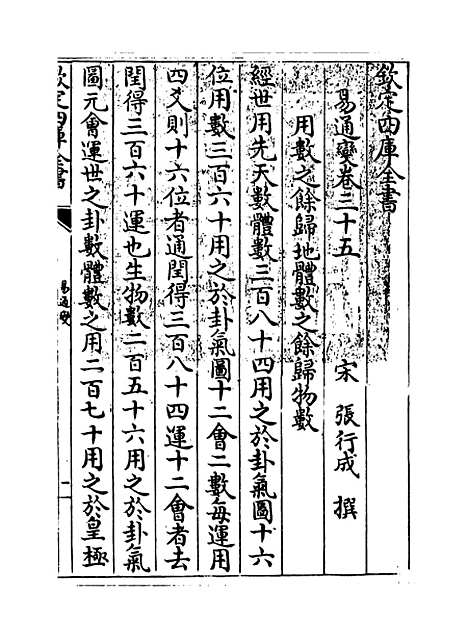 欽定四庫全書
易通變卷三十五　　宋　張行成　撰
用數之餘歸地體數之餘歸物數
經世用先天數體數三百八十四用之於卦氣圖十六
位用數三百六十用之於卦氣圖十二會二數每運用
四爻則十六位者通閏得三百八十四運十二會者去
閏得三百六十運也生物數二百五十六用之於卦氣
圖元會運世之卦數體數之用二百七十用之於皇極
欽定四庫全書
易通變
一